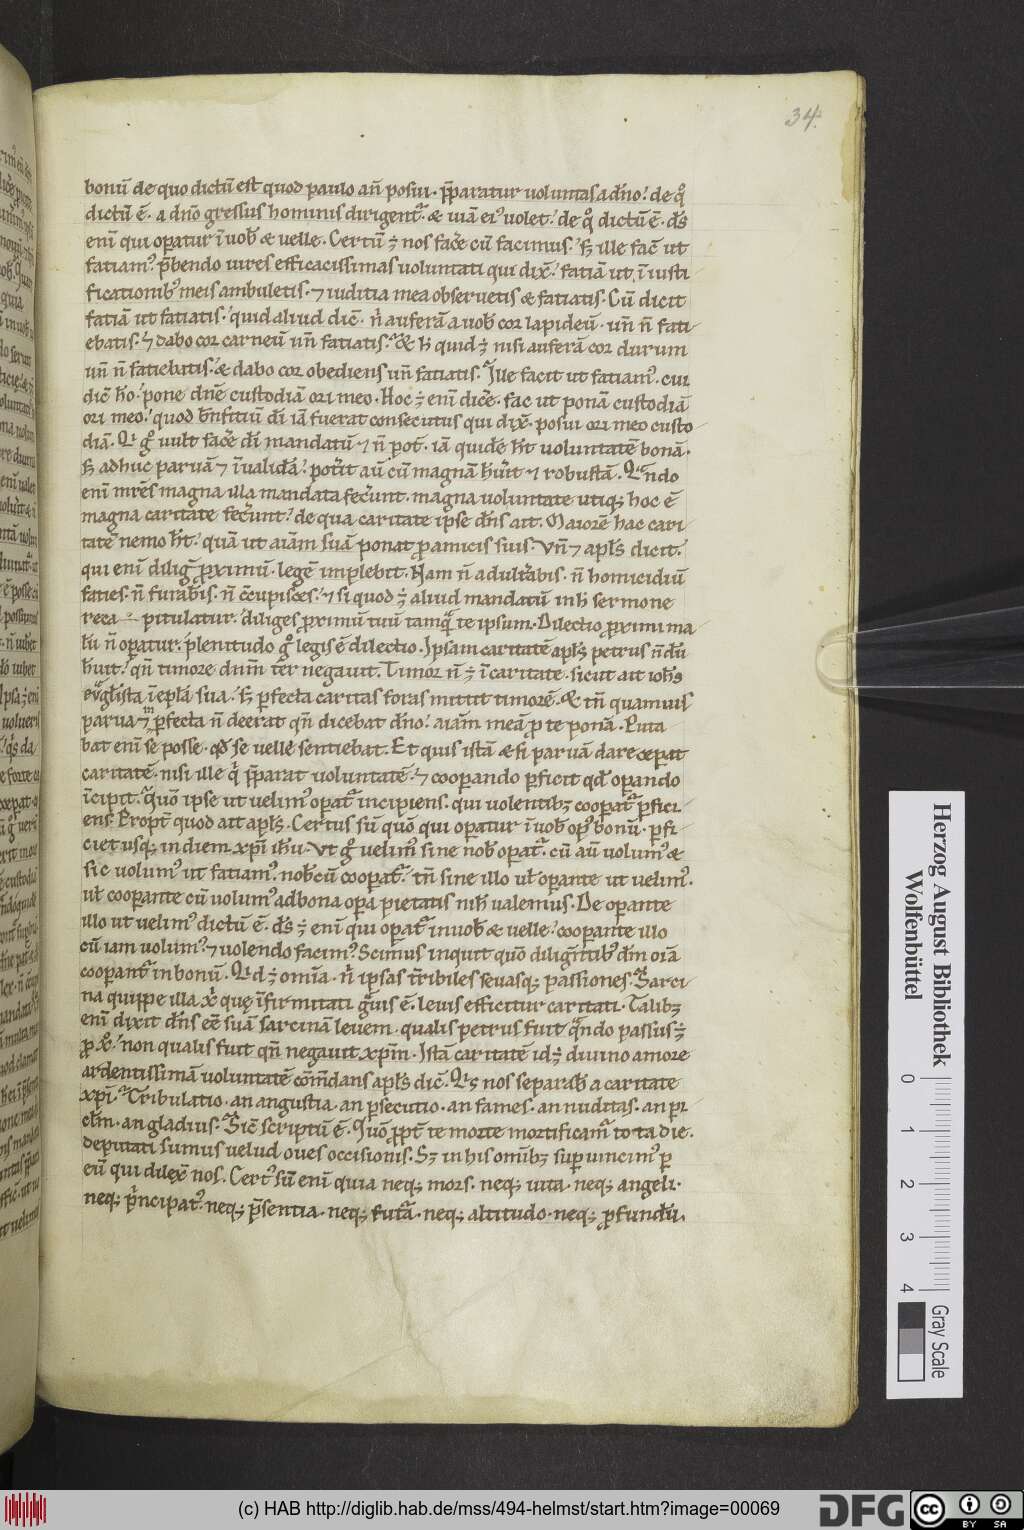 34.
bonū de quo dictū est quod paulo añ posui. p̄paratur uoluntas a dño. de qͦ
dictū ē. a dño gressus hominis dirigentᷣ. & uiā eiꝰ uolet. de qͦ dictū ē. d̄s
enī qui opatur ī uob̄ & uelle. Certū ē nos fac̄e cū facimus. s; ille fac̄ ut
fatiamꝰ. p̄bendo uires efficacissimas uoluntati qui dix̄. fatiā ut ī iusti
ficationibꝰ meis ambuletis. ⁊ iuditia mea obseruetis & fatiatis. Cū dicit
fatiā ut fatiatis. quid aliud dic̄. nͥ auferā a uob̄ cor lapideū. uñ ñ fati
ebatis. ⁊ dabo cor carneū uñ fatiatis. & h̄ quid ē nisi auferā cor durum
uñ ñ fatiebatis. & dabo cor obediens uñ fatiatis. Ille facit ut fatiamꝰ. cui
dic̄ hō. pone dñe custodiā ori meo. Hoc ē enī dic̄e. fac ut ponā custodiā
ori meo. quod b̄nfitiū dī iā fuerat consecutus qui dix̄. posui ori meo custo
diā. Qi gͦ uult fac̄e dī mandatū ⁊ ñ pot̄. iā quidē h̄t uoluntatē bonā.
s; adhuc paruā ⁊ īualidā. pot̄it aū cū magnā hūit ⁊ robustā. Qᵃndo
enī mr̄es magna illa mandata fec̄unt. magna uoluntate utiq; hoc ē
magna caritate fec̄unt. de qua caritate ipse dñs ait. Maiorē hac cari
tatē nemo h̄t. quā ut aīam suā ponat p̲ amicis suis. Vñ ⁊ apl̄s dicit.
qui enī dilig̅ p̲ximū. legē implebit. Nam ñ adult̄abis. ñ homicidiū
faties. ñ furab̄is. ñ c̄cupisces. ⁊ si quod ē aliud mandatū in h̄ sermone
reca pitulatur. diliges p̲ximū tuū tamqᵃ te ipsum. Dilectio p̲ximi ma
lū ñ operatur. plenitudo gͦ legis ē dilectio. Ipsam caritatē apl̄s petrus ñdū
h̄uit. qñ timore dnm̄ ter negauit. Timor ñ ē ī caritate. sicut ait ioh̄s
eūgl̄ista ī epl̄a sua. s; pfecta caritas foras mittit timorē. & tñ quamuis
parua ⁊ īpfecta ñ deerat qñ dicebat dño. aīam meā p̲ te ponā. Puta
bat enī se posse. qđ se uelle sentiebat. Et quis istā & si paruā dare cepat
caritatē. nisi ille qͥ p̄parat uoluntatē. ⁊ coopando pficit qđ opando
īcipit. Qm̄ ipse ut uelimꝰ opatᷣ incipiens. qui uolentibꝫ coopatᷣ pfici
ens. Propt̄ quod ait apl̄s. Certus sū qm̄ qui operatur ī uob̄ opꝰ bonū. pfi
ciet usq; in diem xpī ih̄u. Vt gͦ uelimꝰ sine nob̄ operatᷣ. cū aū uolumꝰ &
sic uolumꝰ ut fatiamꝰ. nob̄cū coopatᷣ. tñ sine illo ul̄ opante ut uelimꝰ.
ul̄ coopante cū uolumꝰ ad bona opa pietatis nih̄ ualemus. De opante
illo ut uelimꝰ dictū ē. d̄s ē enī qui operatᷣ in uob̄ & uelle. cooperante illo
cū iam uolumꝰ ⁊ uolendo facimꝰ. Scimus inquit qm̄ diligntibꝰ dm̄ oīa
coopantᷣ in bonū. Qid ē omīa. nͥ ipsas t̄ribiles seuasq; passiones. Sarci
na quippe illa xͥ quę īfirmitati gᵃuis ē. leuis efficitur caritati. Talibꝫ
enī dixit dñs eē suā sarcinā leuem. qualis petrus fuit qᵃndo passus ē
p̲ xͦ. non qualis fuit qñ negauit xpm̄. Istā caritatē id ē diuino amore
ardentissimā uoluntatē cōmdans apl̄s dic̄. Qis nos separab̄ a caritate
xpī. Tribulatio. an angustia. an psecutio. an fames. an nuditas. an pi
clm̄. an gladius. Sic̄ scriptū ē. Qm̄ p̲pt̄ te morte mortificamᷣ tota die.
deputati sumus uelud oues occisionis. Sꝫ in his omībꝫ supuincimꝰ p
eū qui dilex̄ nos. Certꝰ sū enī quia neq; mors. neq; uita. neq; angeli.
neq; pͥncipatꝰ. neq; p̄sentia. neq; futᵃ. neq; altitudo. neq; p̲fundū.
Herzog August Bibliothek
Wolfenbüttel
0 1 2 3 4
Gray Scale
(c) HAB http://diglib.hab.de/mss/494-helmst/start.htm?image=00069
DFG
cc BY SA